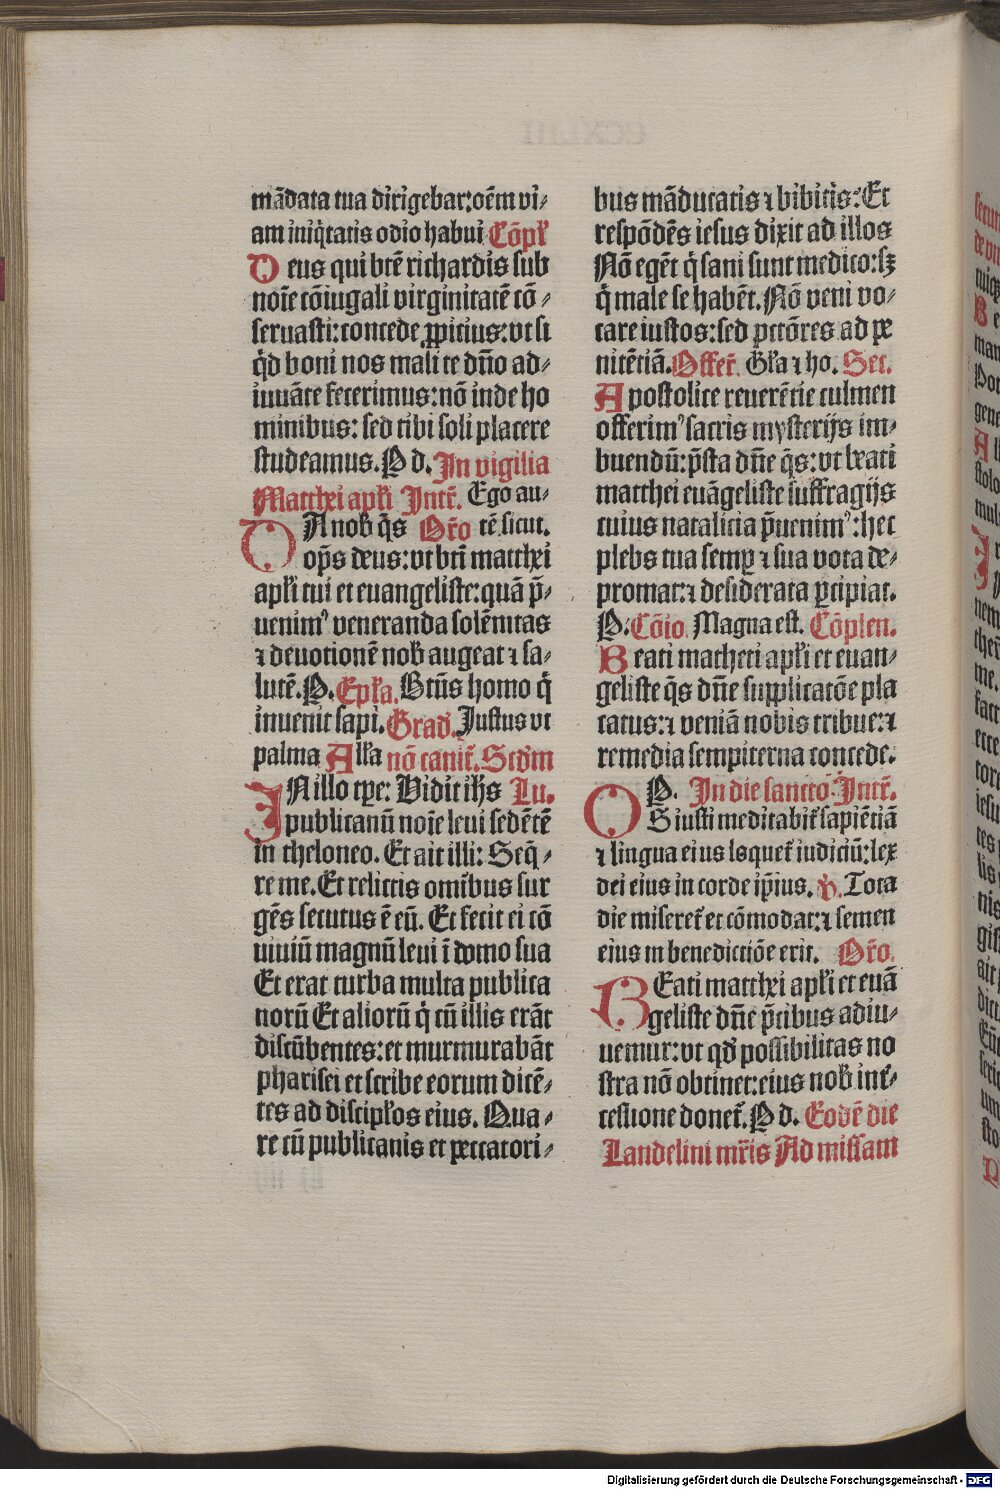 mādata tua dirigebar:oēm vi⸗
am iniq̇tatis odio habui Cōpł
Deus qui btē richardis sub
noīe cōiugali virginitatē cō⸗
seruasti:concede ꝓpicius:vt si
q̇d boni nos mali te dño ad⸗
iuuāte fecerimus:nō inde ho
minibus: sed tibi soli placere
studeamus.P d.In vigilia
Matthei apłi Intr̄. Ego au⸗
DA nob q̄s Or̄o tē sicut.
oṗs deus:vt bti matthei
apłi tui et euangeliste:quā p̄⸗
uenim⁹ veneranda solēnitas
⁊ deuotionē nob augeat ⁊ sa⸗
lutē.P. Epła. Btūs homo q̇
inuenit sapi.Grad. Justus vt
palma Alła nō canit̄. Scd̄m
IN illo tpe: Vidit ihs Lu.
publicanū noīe leui sedētē
in theloneo. Et ait illi: Seq̄⸗
re me. Et relictis omībus sur
gēs secutus ē eū. Et fecit ei cō
uiuiū magnū leui ī domo sua
Et erat turba multa publica
norū Et aliorū q̇ cū illis erāt
discūbentes:et murmurabāt
pharisei et scribe eorum dicē⸗
tes ad discipłos eius. Qua⸗
re cū publicanis et peccatori⸗
bus māducatis ⁊ bibitis: Et
respōdēs iesus dixit ad illos
Nō egēt q̇ sani sunt medico:sꝫ
q̇ male se habēt. Nō veni vo⸗
care iustos:sed pctōres ad pe
nitētiā. Offer̄. Gła ⁊ ho. Sec.
Apostolice reuerētie culmen
offerim⁹ sacris mysterijs im⸗
buendū:p̄sta dn̄e q̄s: vt beati
matthei euāgeliste suffragijs
cuius natalicia p̄uenim⁹: hec
plebs tua semꝑ ⁊ sua vota de⸗
promat:⁊ desiderata ꝑcipiat.
P. Cōio Magna est. Cōplen.
Beati mathei apłi et euan⸗
geliste q̄s dn̄e supplicatōe pla
catus:⁊ veniā nobis tribue:⁊
remedia sempiterna concede.
P. In die sancto Intr̄.
OS iusti meditabit̄ sapiētiā
⁊ lingua eius loquet̄ iudiciū:lex
dei eius in corde ip̄ius. p̄s. Tota
die miseret̄ et cōmodat:⁊ semen
eius in benedictiōe erit. Or̄o.
BEati matthei apłi et euā
geliste dn̄e p̄cibus adiu⸗
uemur:vt qđ possibilitas no
stra nō obtinet:eius nob int̄⸗
cessione donet̄. P d. Eodē die
Landelini mr̄is Ad missam
Digitalisierung gefördert durch die Deutsche Forschungsgemeinschaft - DFG